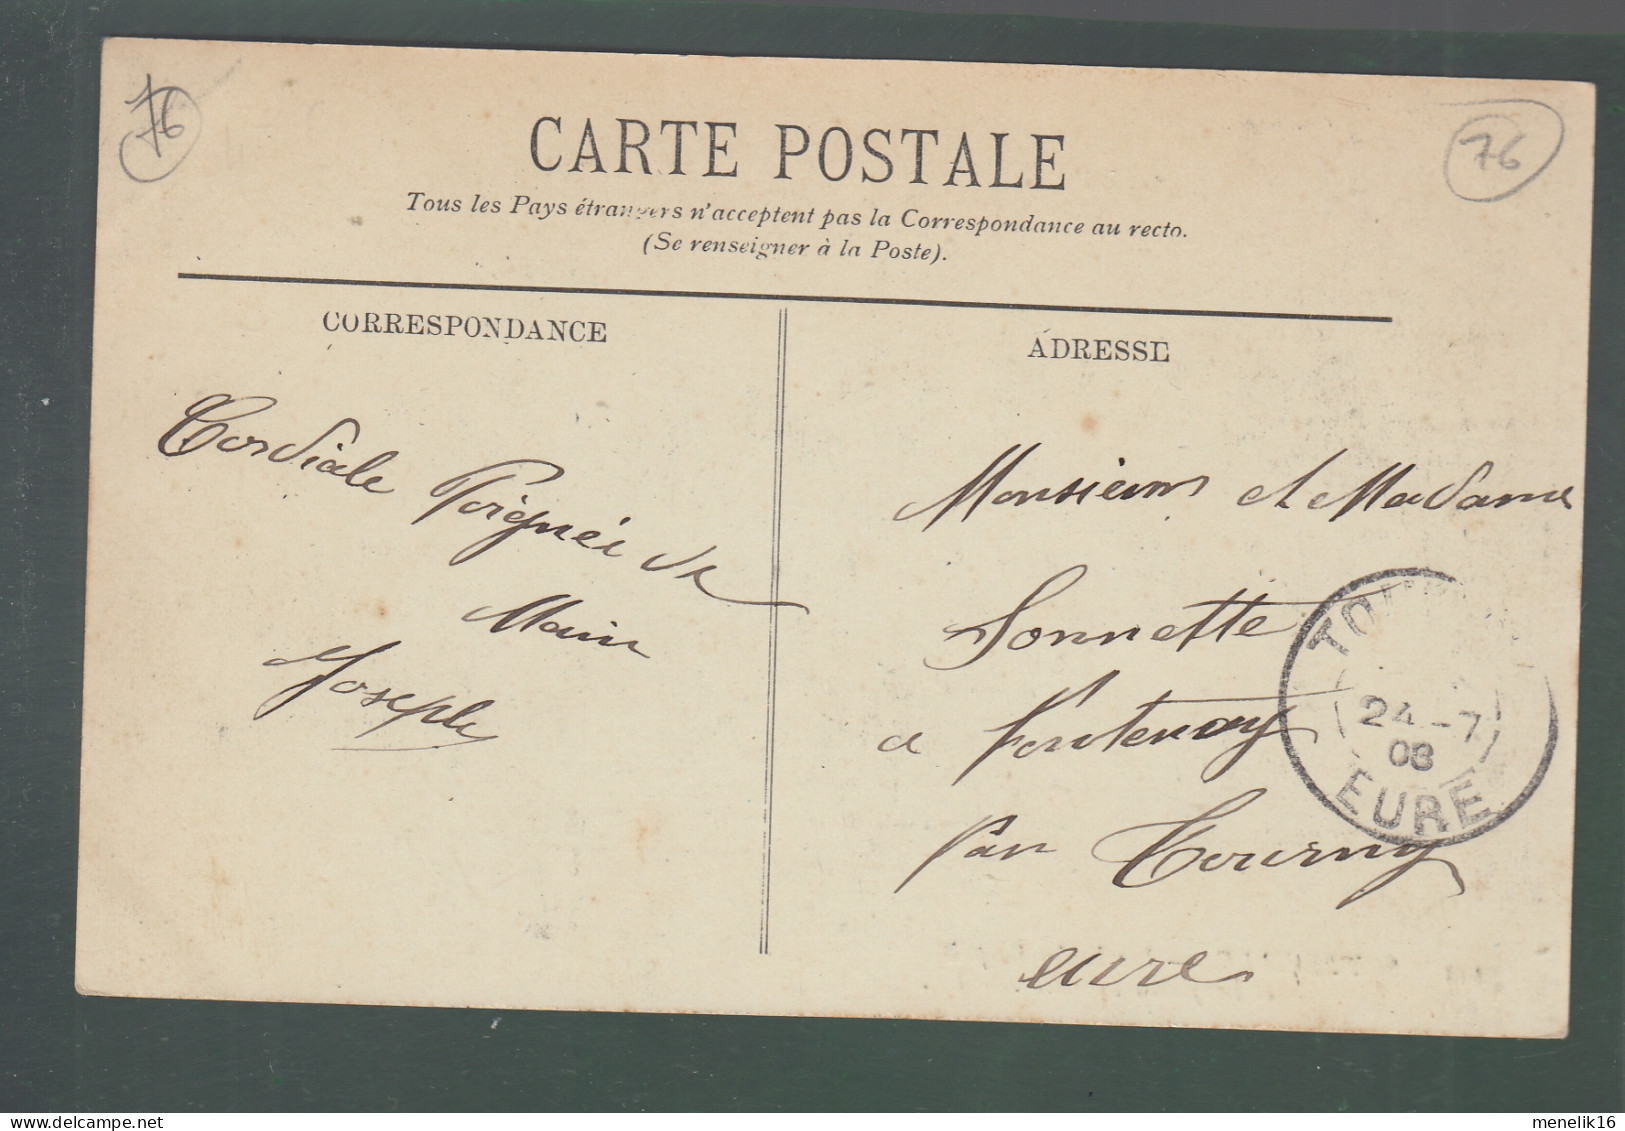 76
76
CARTE POSTALE
Tous les Pays étrangers n'acceptent pas la Correspondance au recto.
(Se renseigner à la Poste).
CORRESPONDANCE
Cordiale Poignée de
Main
Joseph
ADRESSE
Monsieur et Madame
Sonnette
a Fontenay
par Tourny
eure
24-7
08
EURE
menelik16